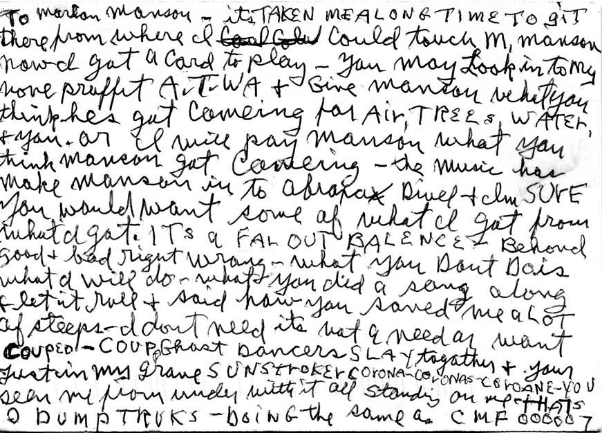 To marlon manson - its TAKEN ME ALONG TIME TO giT
there from where I Could touch M, manson
now I got a Card to play - You may Look in to My
none proffit A.T.W.A + Give manson what you
think hes got Comeing for Air, TREES, WATER,
+ you. or I will pay manson what you
think manson got Comeing - the music has
make manson in to abraxax Divel + Im SURE
You would want some of what I got from
what I got. ITS a FAR OUT BALENCE - Behond
good + bad right wrong - what you Dont Dois
what I will do - what you did a song along
+ let it roll + said how you saved me a LOT
of steeps - I dont need its not a need or want
COUPED - COUP, Ghost Dancers SLAY togather + your
Just in my grave SUNSTROKER CORONA-CORONAS-COROANE-YOU
seen me from under with it all standing on me THATS
2 DUMP TRUKS - DOING THE same as CMF 000007